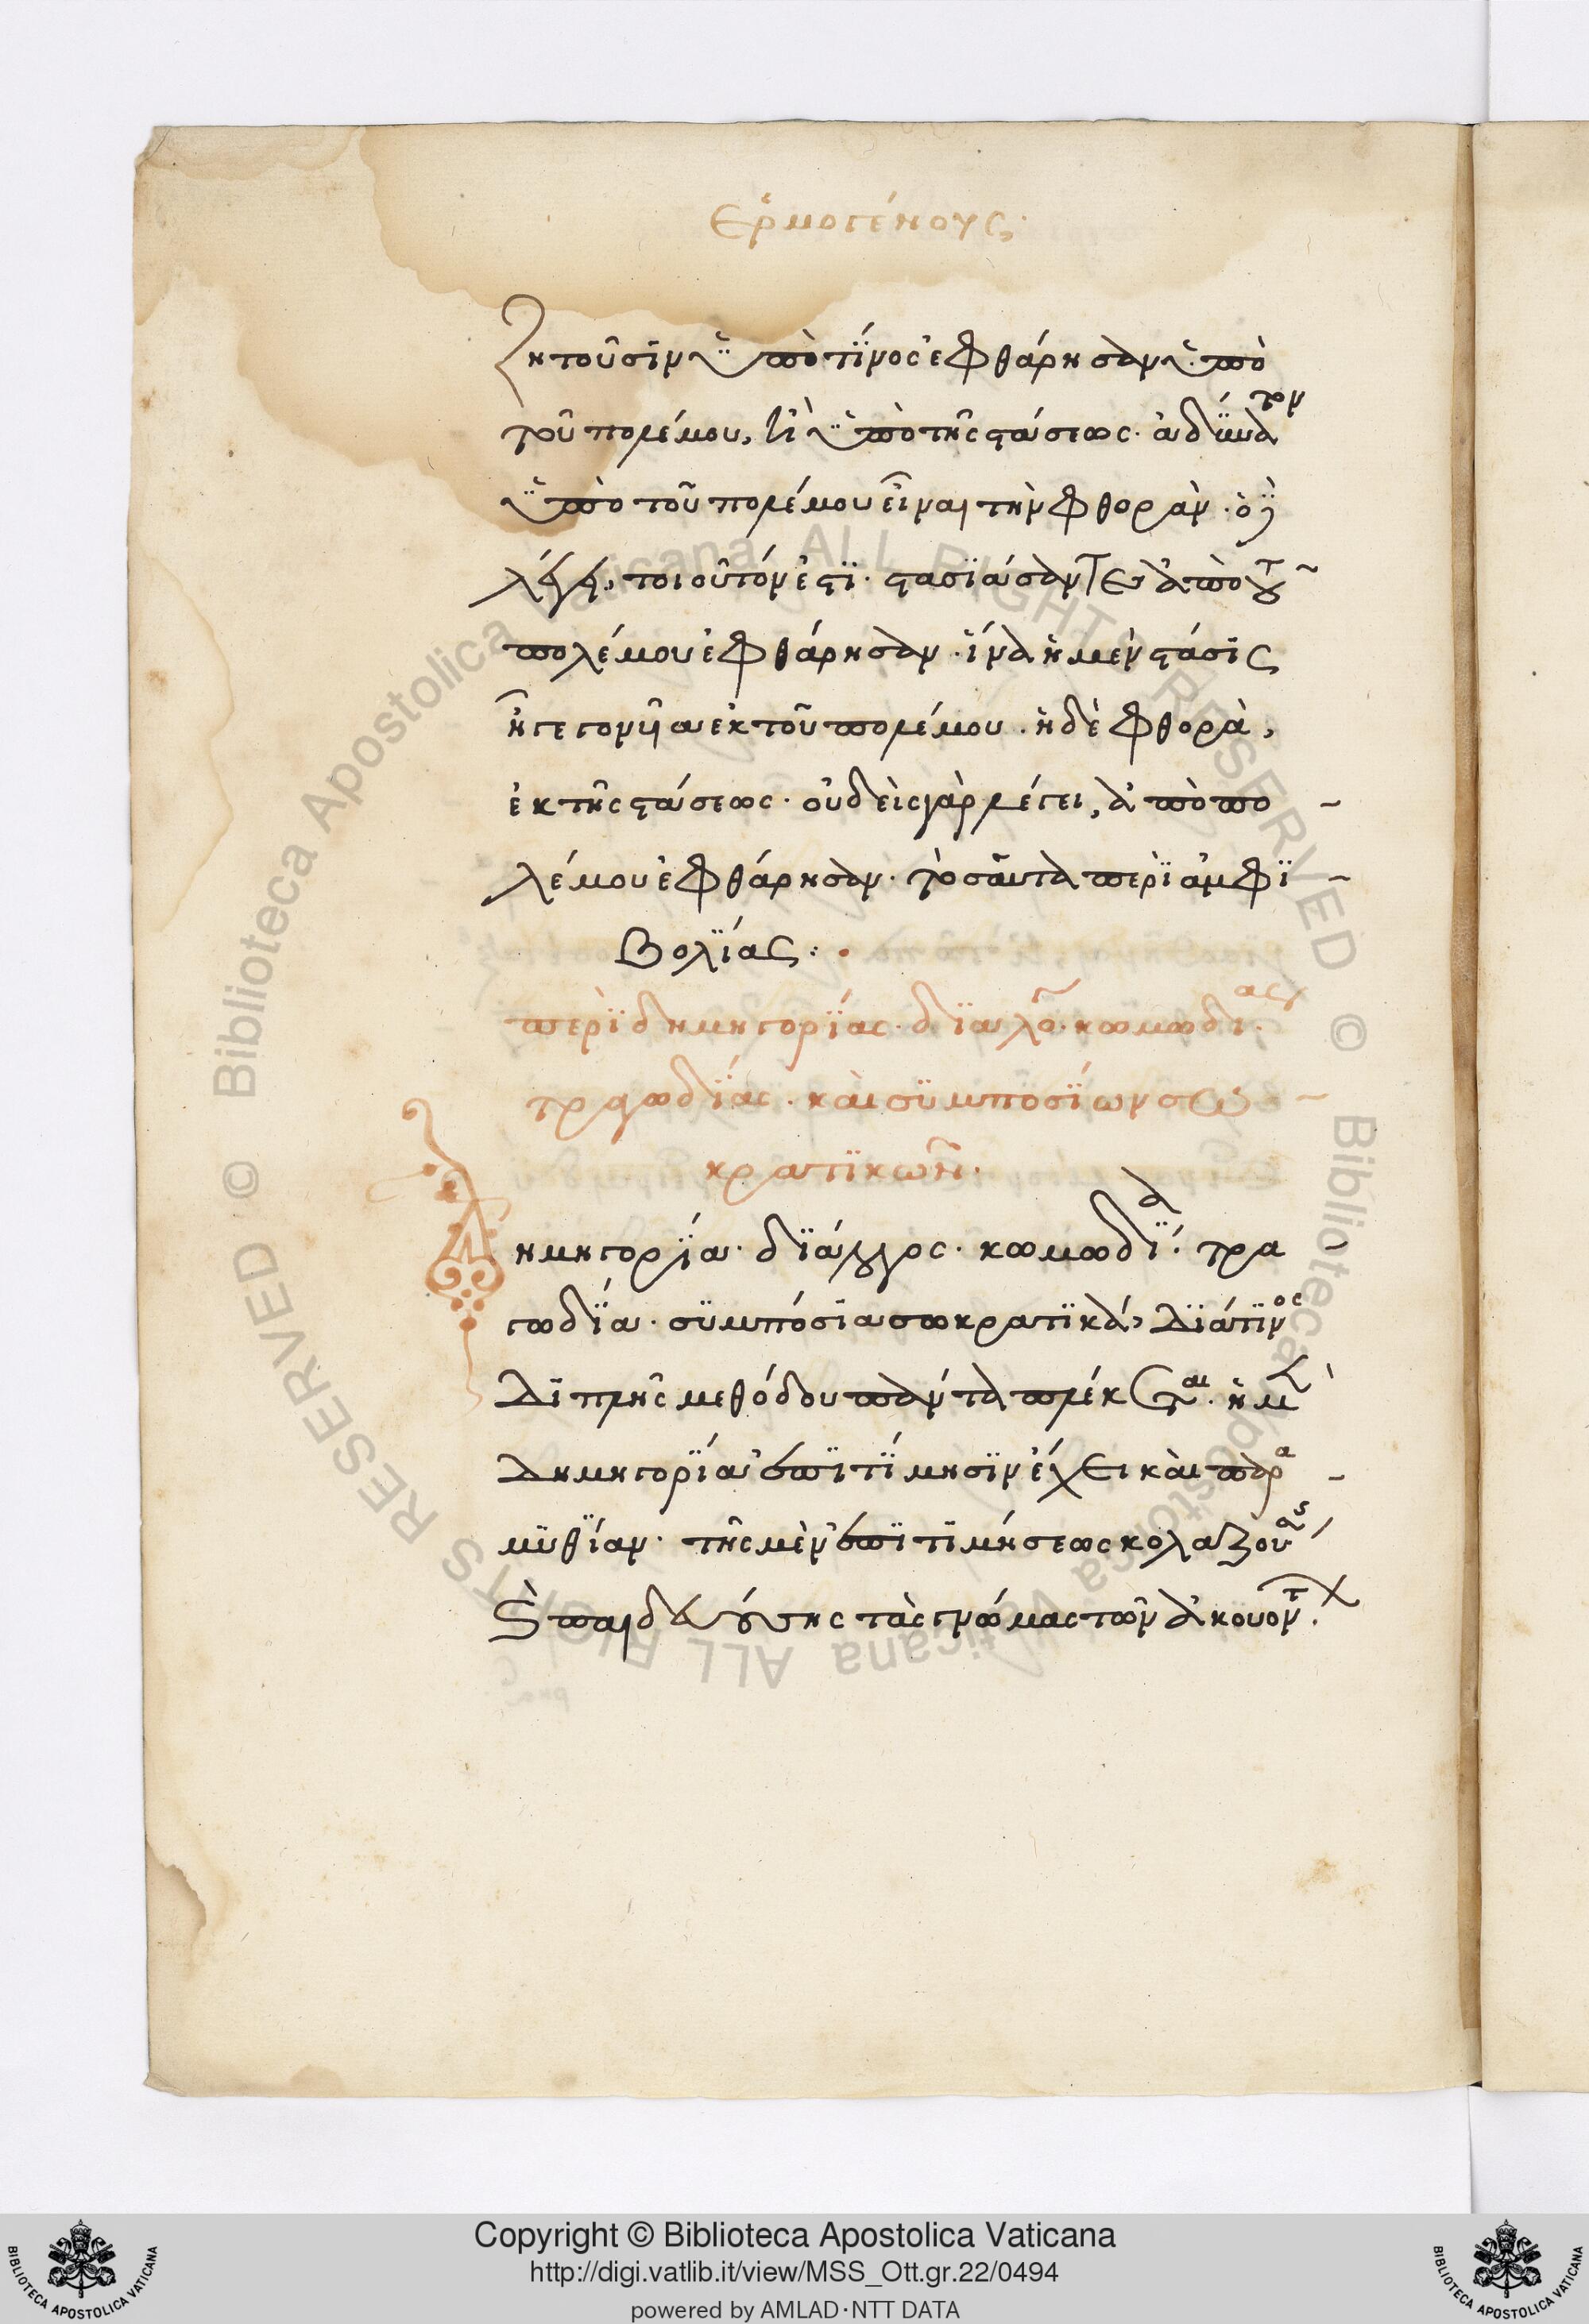 Ἑρμογένους·
ζητοῦσιν ὑπὸ τίνος ἐφθάρησαν ὑπὸ
τοῦ πολέμου, ἢ ὑπὸ τῆς στάσεως· ἀδύνατον
ὑπὸ τοῦ πολέμου εἶναι τὴν φθοράν· ὃ
λέγει, τοιοῦτόν ἐστι· στασιάσαντες ἀπὸ τοῦ
πολέμου ἐφθάρησαν· ἵνα ἡ μὲν στάσις
ἦ γεγονυῖα ἐκ τοῦ πολέμου· ἡ δὲ φθορὰ,
ἐκ τῆς στάσεως· οὐδεὶς γὰρ λέγει, ἀπὸ πο
λέμου ἐφθάρησαν· τοσαῦτα περὶ ἀμφι
βολίας:·
περὶ δημηγορίας· διαλό· κωμωδίας·
τραγωδίας· καὶ συμποσίων σω
κρατικῶν·
Δημηγορία· διάλογος· κωμωδία· τρα
γωδία· συμπόσια σωκρατικὰ, διά τινος
διπλῆς μεθόδου πάντα πλέκεται· ἡ μὲν
δημηγορία ἐπιτίμησιν ἔχει καὶ παρα
μυθίαν· τῆς μὲν ἐπιτιμήσεως κολαζούσης
καὶ παιδευούσης τὰς γνώμας τῶν ἀκουόντ·
Copyright © Biblioteca Apostolica Vaticana
http://digi.vatlib.it/view/MSS_Ott.gr.22/0494
powered by AMLAD·NTT DATA
BIBLIOTECA APOSTOLICA VATICANA
BIBLIOTECA APOSTOLICA VATICANA
© Biblioteca Apostolica Vaticana ALL RIGHTS RESERVED © Biblioteca Apostolica Vaticana ALL RIGHTS RESERVED